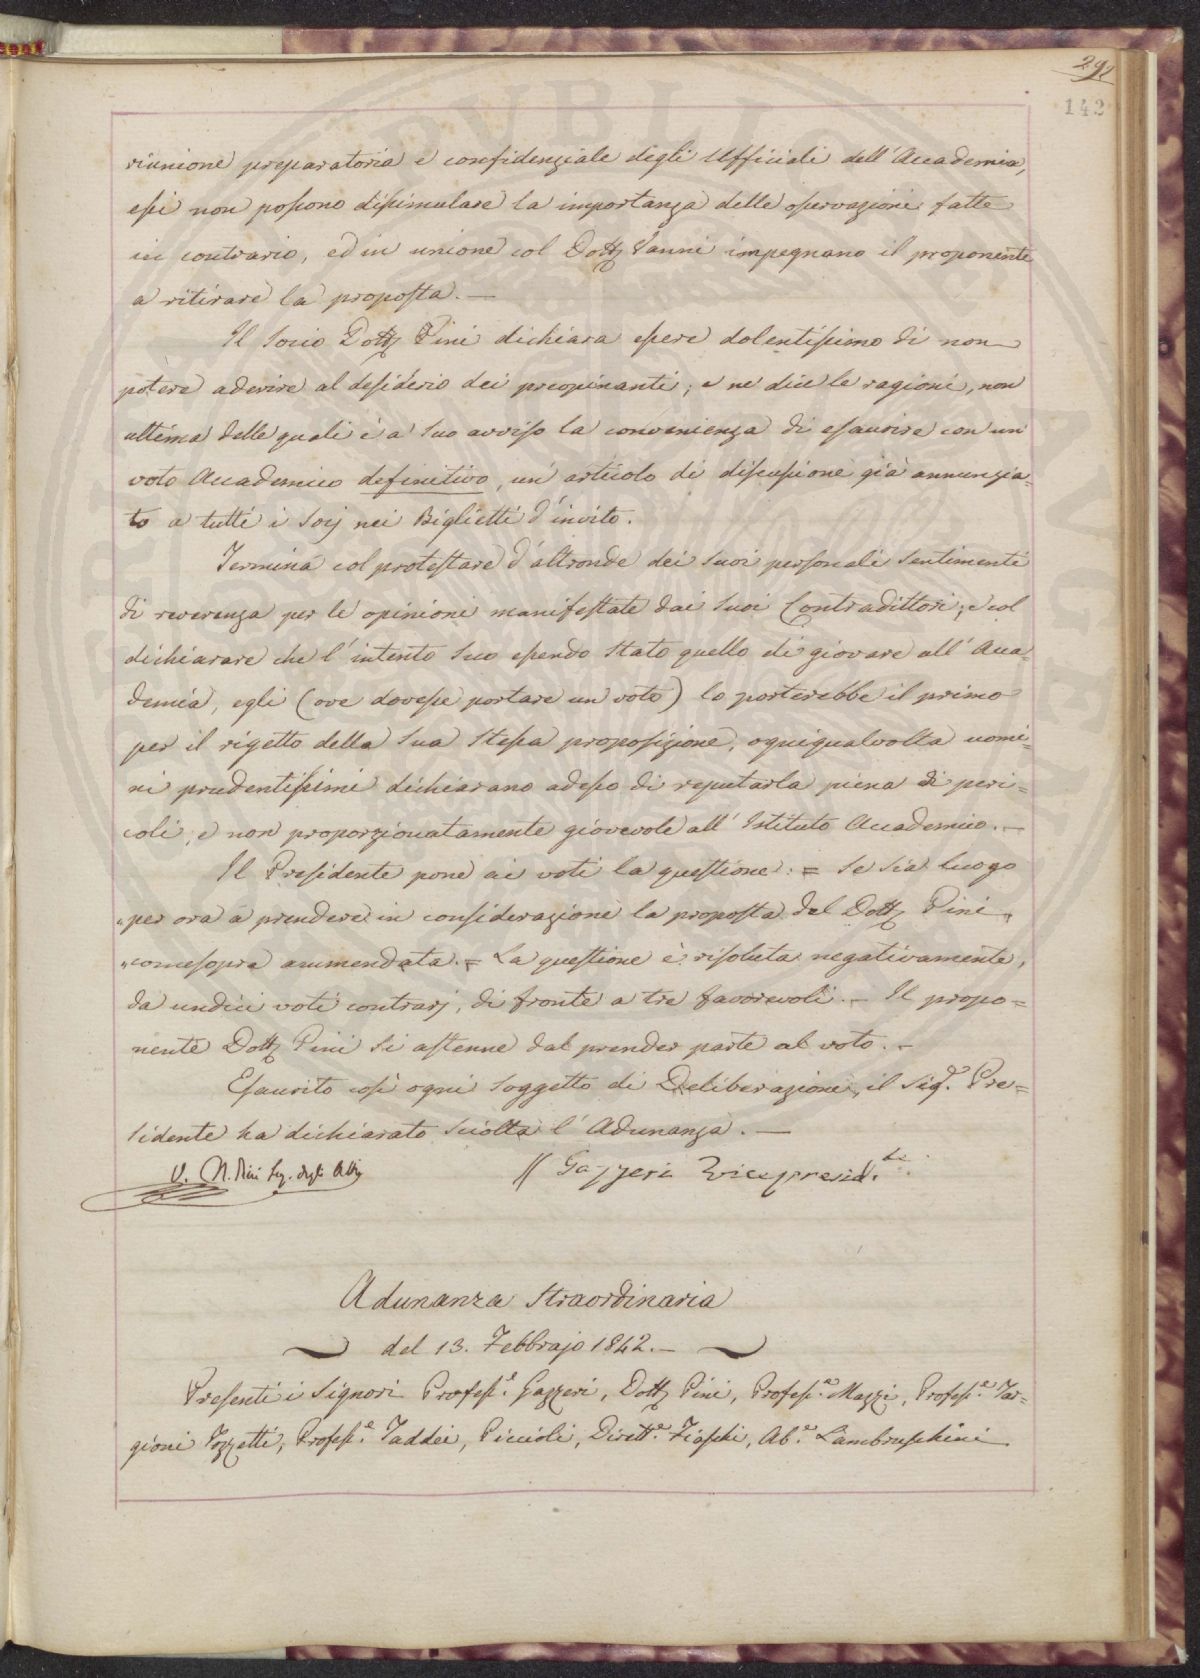 291
142
riunione preparatoria e confidenziale degli Ufficiali dell'Accademia,
essi non possono dissimulare la importanza delle osservazioni fatte
in contrario, ed in unione col Dott. Vanni impegnano il proponente
a ritirare la proposta. —
Il Socio Dott. Pini dichiara essere dolentissimo di non
potere aderire al desiderio dei preopinanti; e ne dice le ragioni, non
ultima delle quali è a suo avviso la convenienza di esaurire con un
voto Accademico definitivo, un' articolo di discussione già annunzia-
to a tutti i Socj nei Biglietti d'invito.
Termina col protestare d'altronde dei suoi personali sentimenti
di reverenza per le opinioni manifestate dai suoi Contradittori; e col
dichiarare che l'intento suo essendo stato quello di giovare all'Acca-
demia, egli (ove dovesse portare un voto) lo porterebbe il primo
per il rigetto della sua stessa proposizione, ogniqualvolta uomi-
ni prudentissimi dichiarano adesso di reputarla piena di peri=
coli, e non proporzionatamente giovevole all'Istituto Accademico. —
Il Presidente pone ai voti la questione: = Se sia luogo
"per ora a prendere in considerazione la proposta del Dott. Pini
"comesopra ammendata. = La questione è risoluta negativamente,
da undici voti contrarj, di fronte a tre favorevoli. — Il propo=
nente Dott. Pini si astenne dal prender parte al voto. —
Esaurito così ogni soggetto di Deliberazione, il Sigr. Pre=
sidente ha dichiarato sciolta l'Adunanza. —
V. N. Pini Seg. degli Atti
Gazzeri Vicepresid.te
Adunanza Straordinaria
del 13. Febbrajo 1842. —
Presenti i Signori Profess.e Gazzeri, Dott. Pini, Profess.e Mazzi, Profess.e Tar=
gioni Tozzetti, Profess.e Taddei, Piccioli, Dirett.e Fiaschi, Ab.e Lambruschini